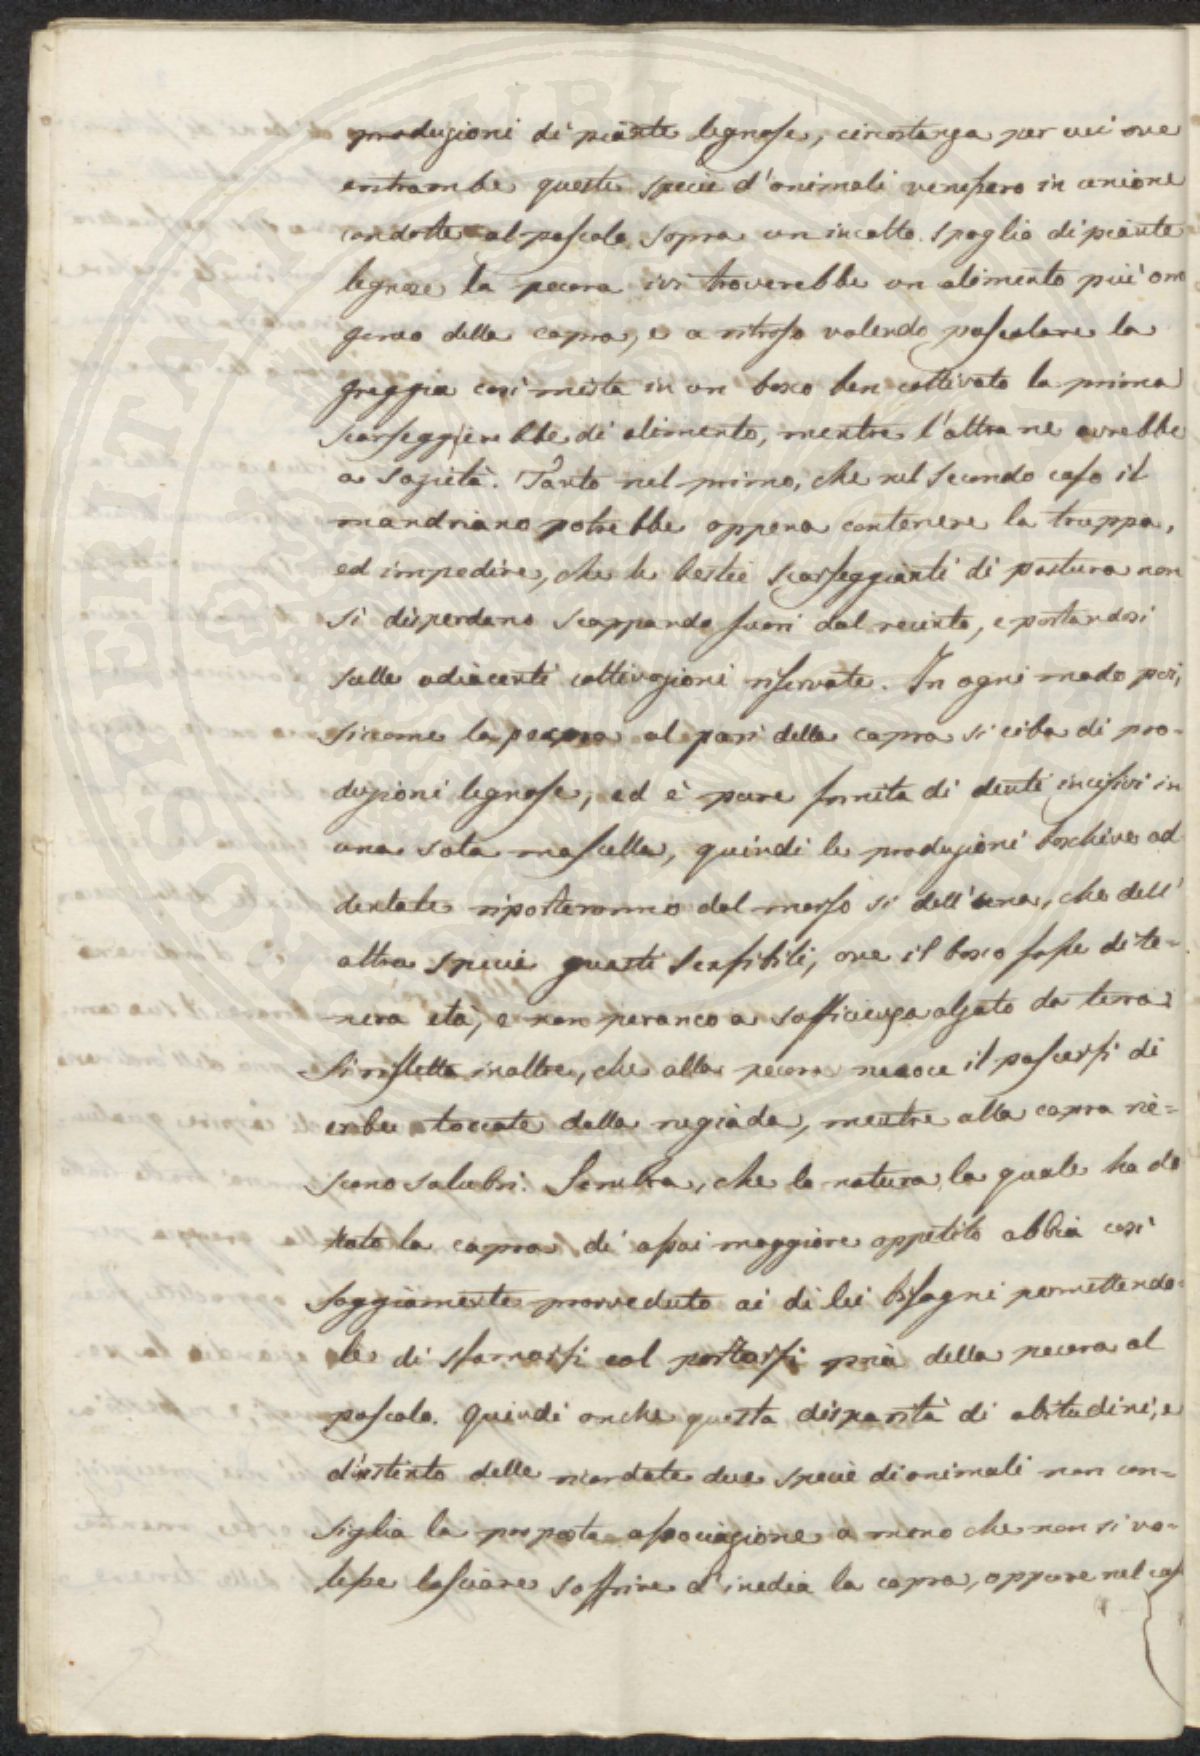 produzioni di piante legnose, circostanza per cui ove
entrambe queste specie d'animali venissero in unione
condotte al pascolo sopra un incolto spoglio di piante
legnose la pecora ivi troverebbe un alimento più omo
geneo della capra, e a ritroso volendo pascolare la
greggia così mista in un bosco ben coltivato la prima
scarseggierebbe di alimento, mentre l'altra ne avrebbe
a sazietà. Tanto nel primo, che nel secondo caso il
mandriano potrebbe appena contenere la truppa,
ed impedire, che le bestie scarseggianti di pastura non
si disperdano scappando fuori dal recinto, e portandosi
sulle adiacenti coltivazioni riservate. In ogni modo poi,
siccome la pecora al pari della capra si ciba di pro-
duzioni legnose, ed è pure fornita di denti incisivi in
una sola mascella, quindi le produzioni boschive ad
dentate riporteranno dal morso sì dell'una, che dell'
altra specie guasti sensibili, ove il bosco fosse di te-
nera età, e non peranco a sufficienza alzato da terra.
Si rifletta inoltre, che alla pecora nuoce il pascersi di
erbe toccate dalla rugiada, mentre alla capra rie-
scono salubri. Sembra, che la natura, la quale ha do
tato la capra di assai maggiore appetito abbia così
saggiamente provveduto ai di lei bisogni permettendo-
le di sfamarsi col portarsi pria della pecora al
pascolo. Quindi anche questa disparità di abitudini, e
d'istinto delle ricordate due specie di animali non con-
siglia la proposta associazione a meno che non si vo-
lesse lasciare soffrire d'inedia la capra, oppure nel caso